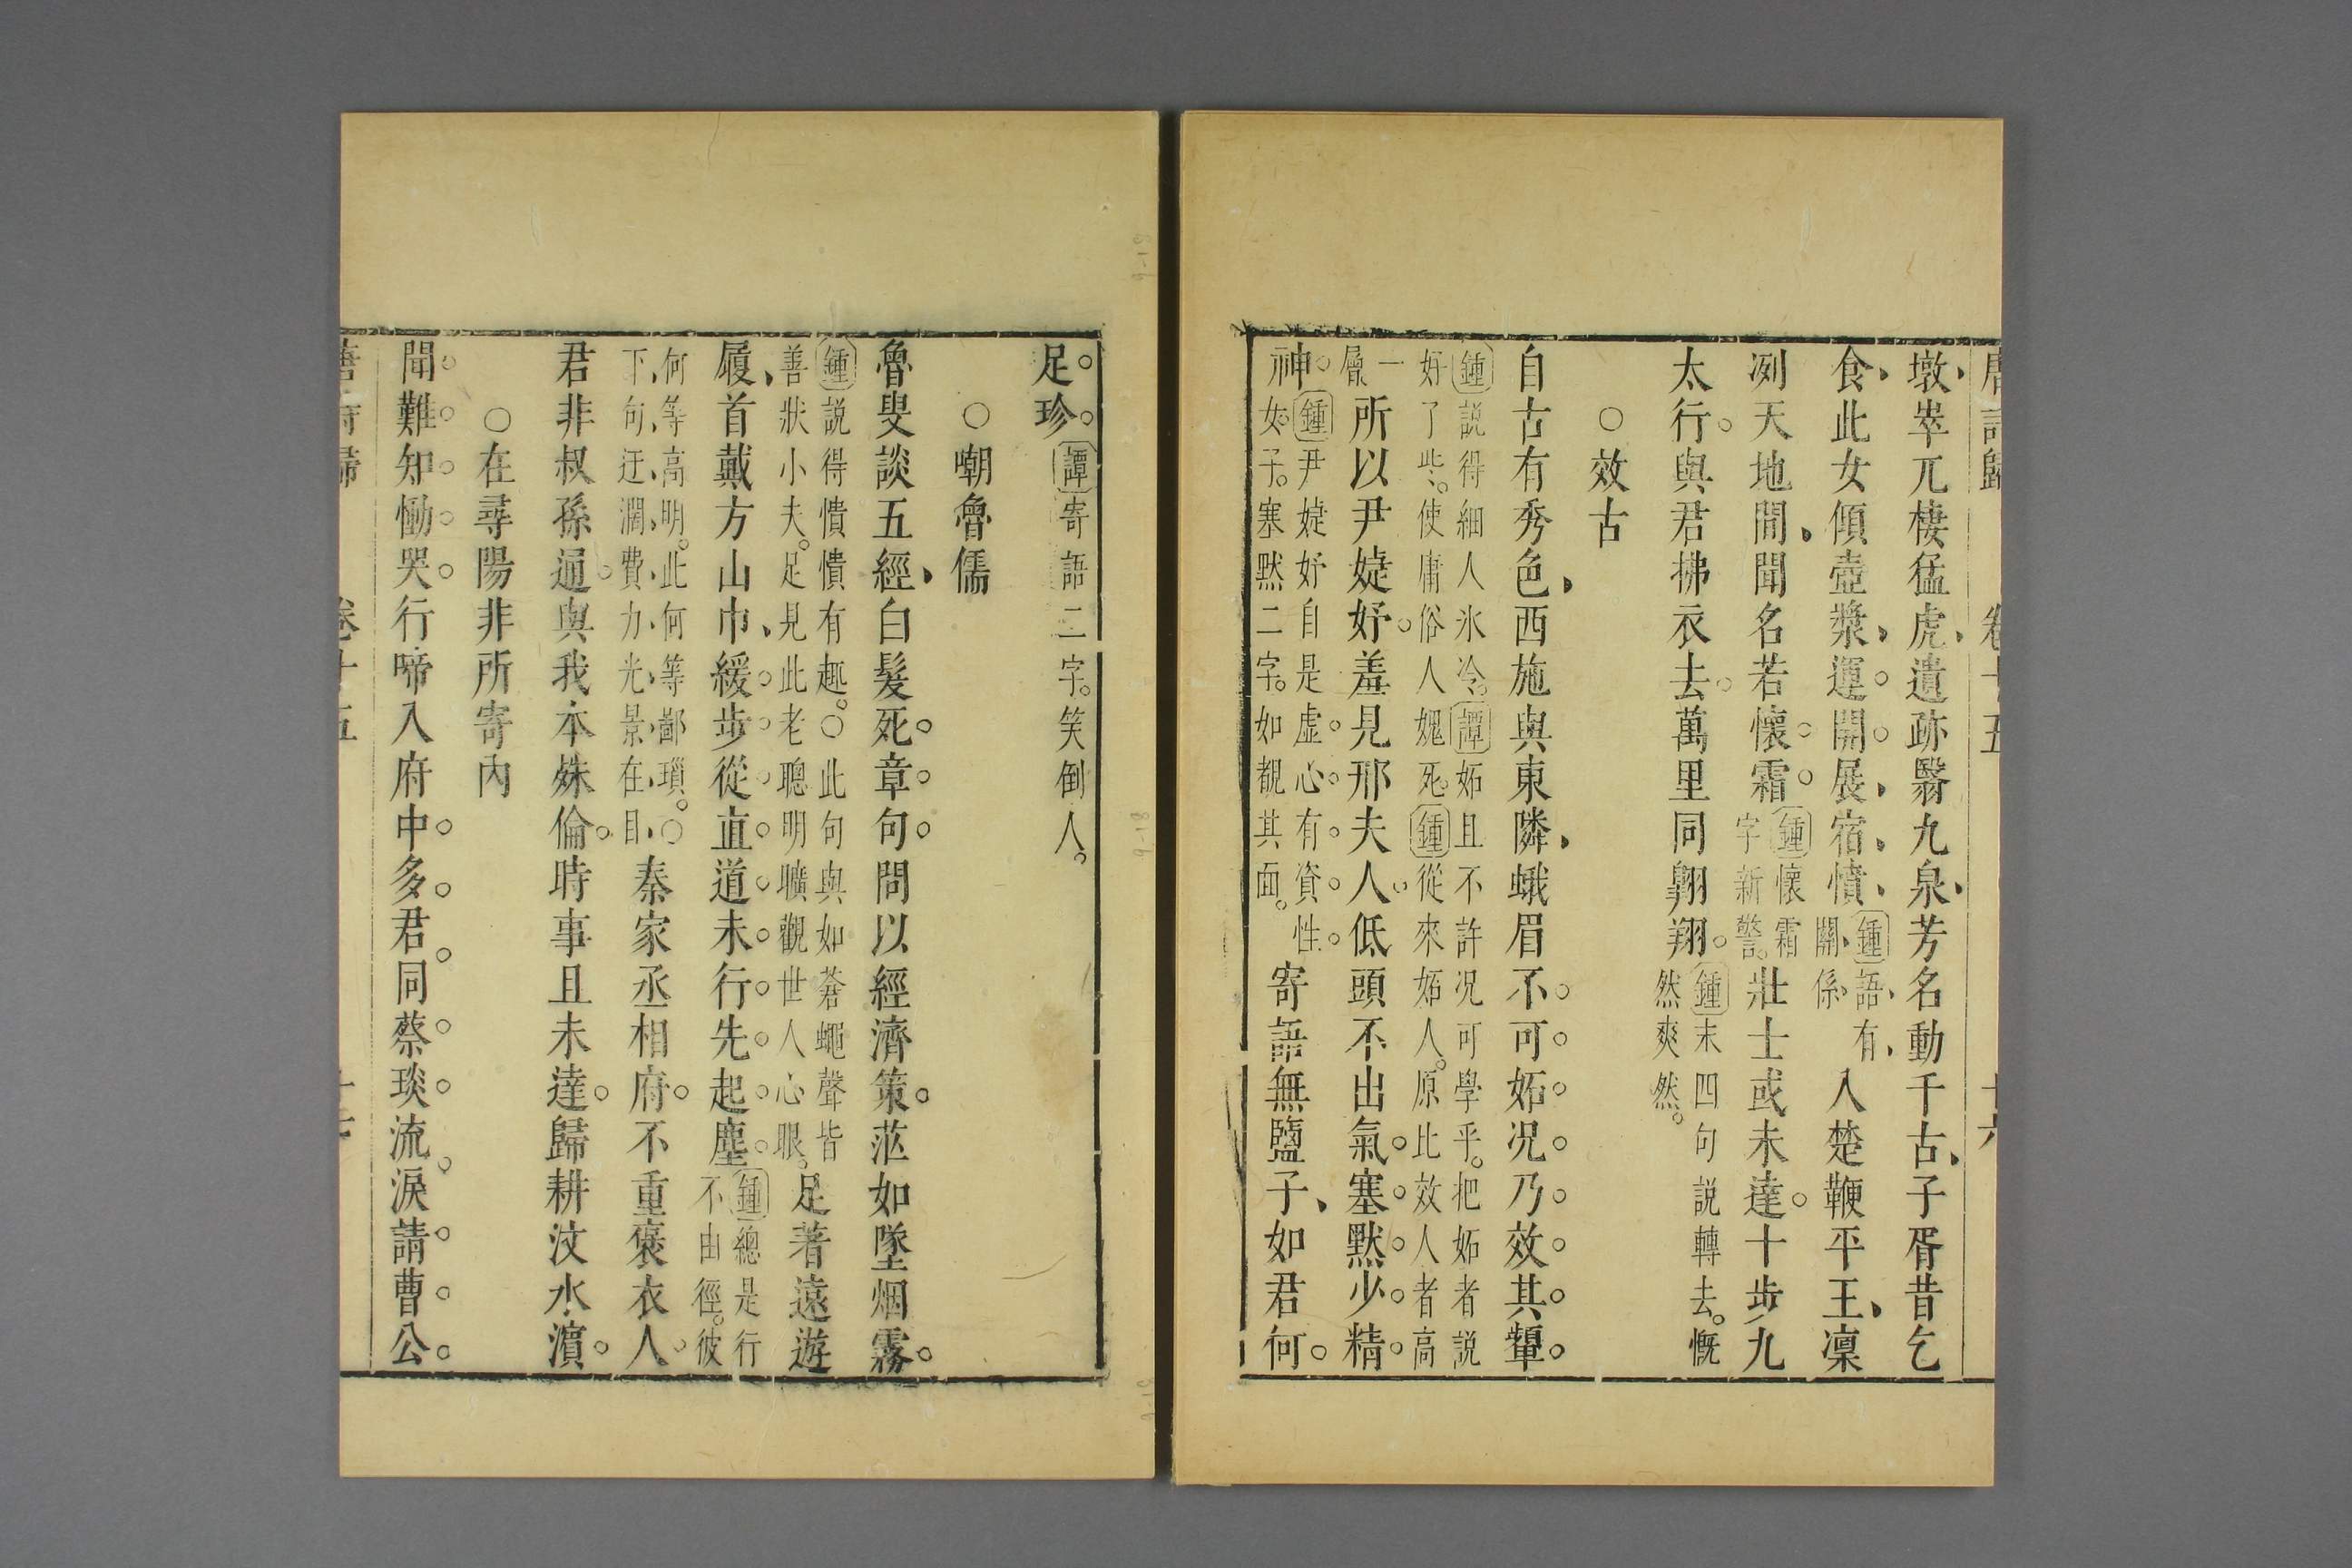 唐詩歸 卷十五 十六
墩崒兀棲猛虎遺跡翳九泉芳名動千古子胥昔乞
食此女傾壺漿運開展宿憤鍾語有關係入楚鞭平王凜
冽天地間聞名若懷霜鍾懷霜字新警壯士或未達十步九
太行與君拂衣去萬里同翱翔鍾末四句說轉去慨然爽然
○效古
自古有秀色西施與東隣蛾眉不可妬况乃效其顰
鍾説得細人氷冷譚妬且不許况可學乎把妬者説
好了些使庸俗人媿死鍾從來妬人原比效人者高
一層所以尹婕妤羞見邢夫人低頭不出氣塞默少精
神鍾尹婕妤自是虚心有資性女子塞默二字如覩其面寄語無鹽子如君何
足珍譚寄語二字笑倒人
○嘲魯儒
魯叟談五經白髮死章句問以經濟策茫如墜烟霧
鍾説得憒憒有趣○此句與如蒼蠅聲皆善狀小夫足見此老聰明曠觀世人心眼足著遠遊
履首戴方山巾緩步從直道未行先起塵鍾總是行不由徑彼
何等高明此何等鄙瑣○下句迂濶費力光景在目秦家丞相府不重褒衣人
君非叔孫通與我本殊倫時事且未達歸耕汶水濱
○在尋陽非所寄內
聞難知慟哭行啼入府中多君同蔡琰流淚請曹公
卷十五